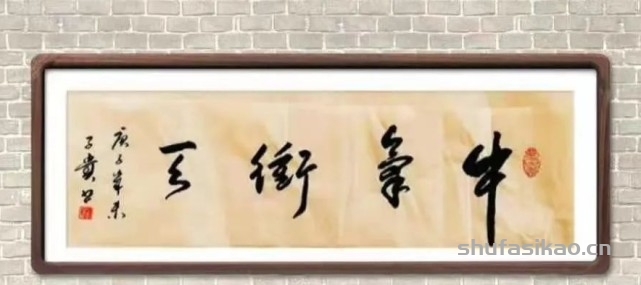 牛氣衝天
庚子年末
子贵书
shufasikao.cn